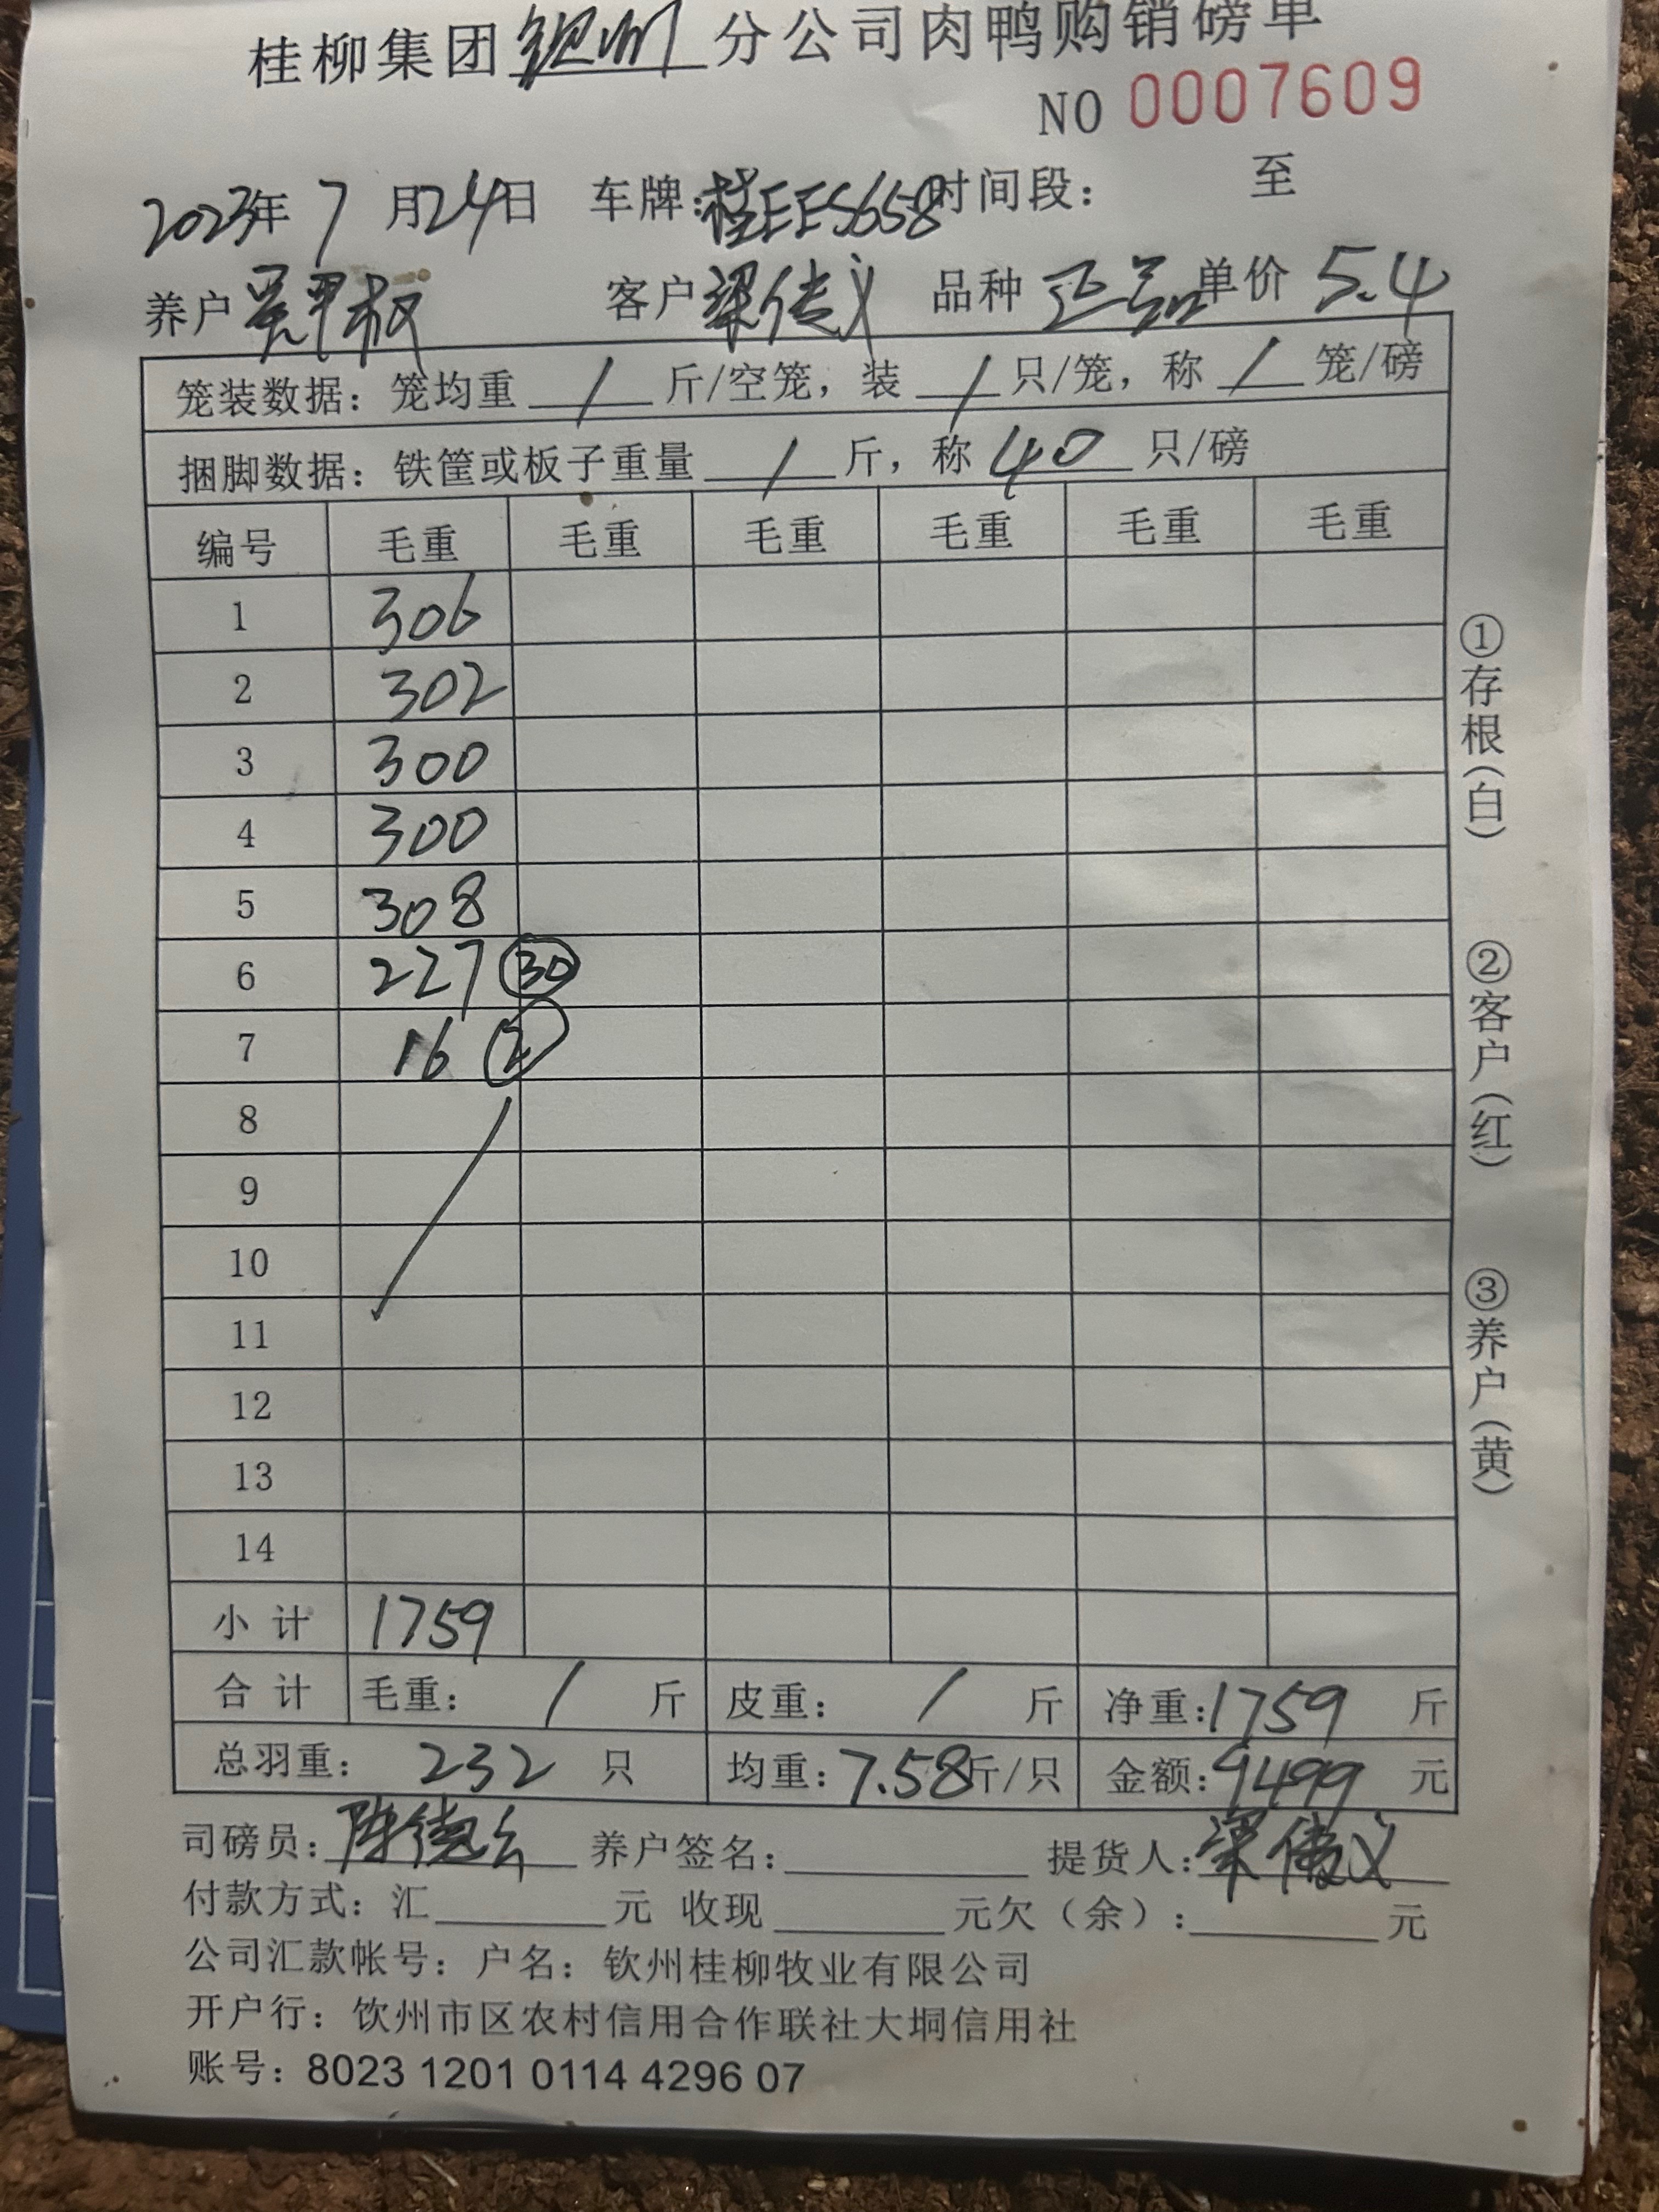 桂柳集团钦州分公司肉鸭购销磅单
NO 0007609
2023年 7 月24日 车牌:桂EES658时间段: 至
养户 客户梁传义 品种 正品 单价 5.4
笼装数据: 笼均重 / 斤/空笼, 装 / 只/笼, 称 / 笼/磅
捆脚数据: 铁筐或板子重量 / 斤, 称 40 只/磅
编号 毛重 毛重 毛重 毛重 毛重 毛重
1 306
2 302
3 300
4 300
5 308
6 227 30
7 16 2
8
9
10
11
12
13
14
小 计 1759
合 计 毛重: / 斤 皮重: / 斤 净重:1759 斤
总羽重: 232 只 均重:7.58斤/只 金额:9499 元
司磅员:陈德 养户签名: 提货人:梁传义
付款方式: 汇 元 收现 元欠（余）: 元
公司汇款帐号: 户名: 钦州桂柳牧业有限公司
开户行: 饮州市区农村信用合作联社大垌信用社
账号: 8023 1201 0114 4296 07
①存根（白） ②客户（红） ③养户（黄）